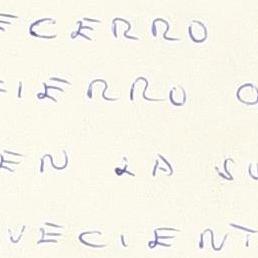 ECERRO
IERRO O
EN LA SU
VECIENT